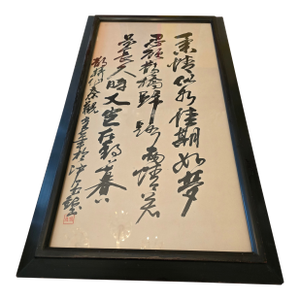 柔情似水佳期如梦
忍顾鹊桥歸路两情若
是長久时又岂在朝朝暮暮
鹊桥仙秦觀